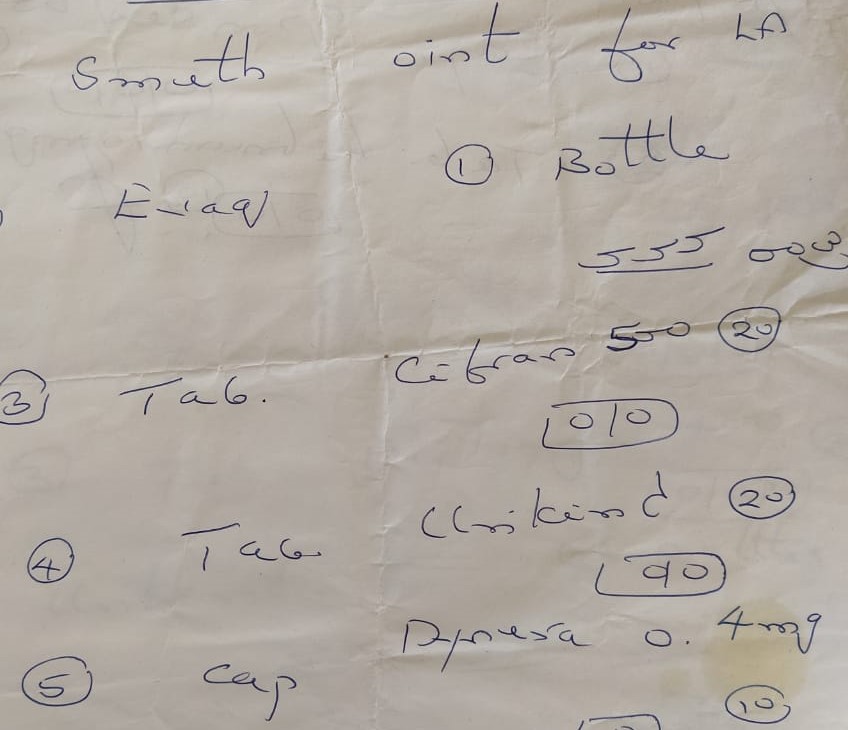 Smuth oint for LA
① Bottle
E-raq
555
③ Tab. Cifran 500 ⑳
010
④ Tab Clinkind ⑳
Dpnesa 0.4mg
⑤ Cap
⑩